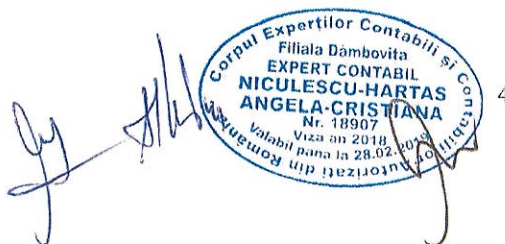 Corpul Experților Contabili și Contabililor Autorizați din România
Filiala Dâmbovita
EXPERT CONTABIL
NICULESCU-HARTAS
ANGELA-CRISTIANA
Nr. 18907
Viza an 2018
Valabil pana la 28.02.2019
4